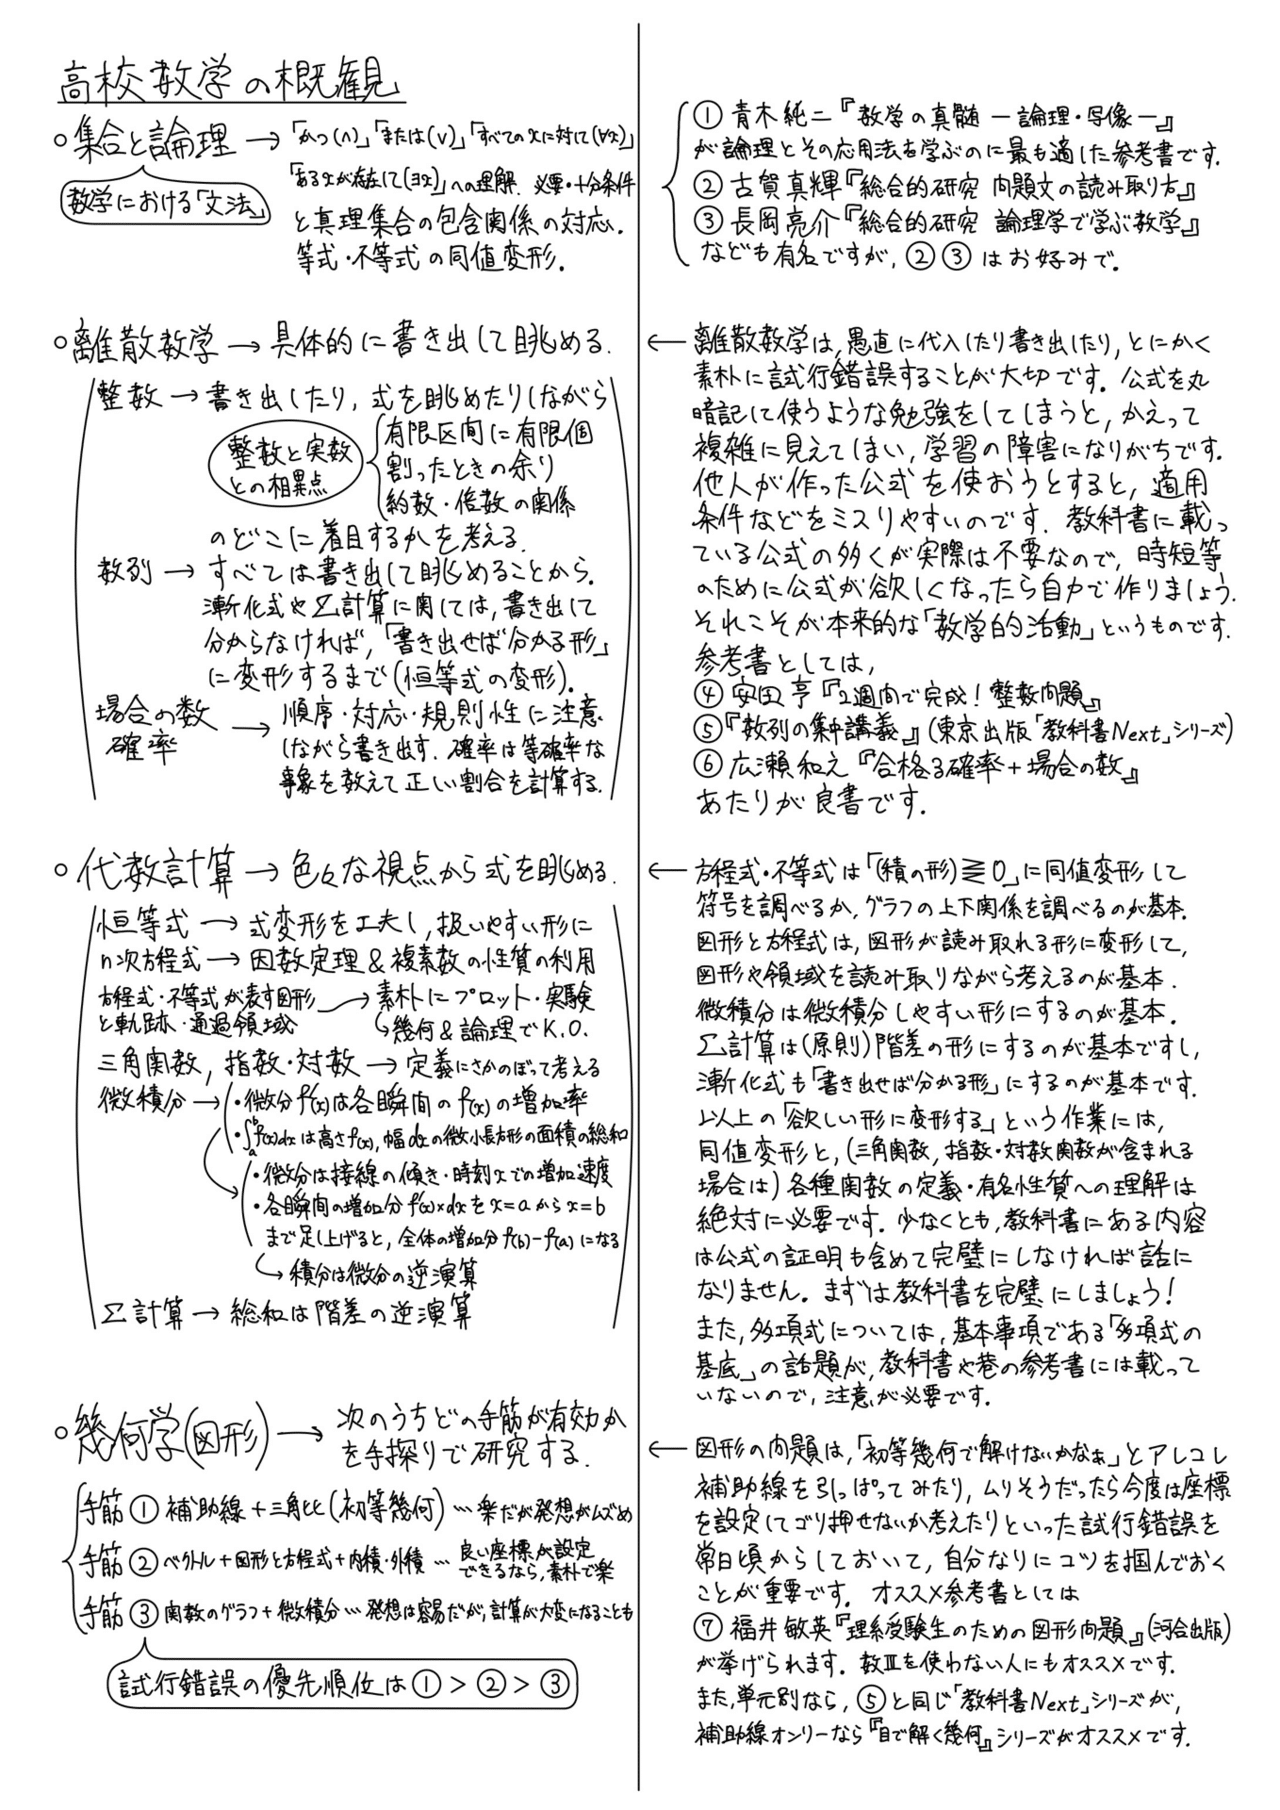 高校数学の概観
○集合と論理 → 「かつ(∧)」「または(∨)」「すべてのxに対して(∀x)」
「あるxが存在して(∃x)」への理解. 必要・十分条件
数学における「文法」
と真理集合の包含関係の対応.
等式・不等式の同値変形.
○離散数学 → 具体的に書き出して眺める.
整数 → 書き出したり, 式を眺めたりしながら
整数と実数
との相異点
有限区間に有限個
割ったときの余り
約数・倍数の関係
のどこに着目するかを考える.
数列 → すべては書き出して眺めることから.
漸化式やΣ計算に関しては, 書き出して
分からなければ, 「書き出せば分かる形」
に変形するまで(恒等式の変形).
場合の数
確率
→ 順序・対応・規則性に注意
しながら書き出す. 確率は等確率な
事象を数えて正しい割合を計算する.
○代数計算 → 色々な視点から式を眺める.
恒等式 → 式変形を工夫し, 扱いやすい形に
n次方程式 → 因数定理 & 複素数の性質の利用
方程式・不等式が表す図形
と軌跡・通過領域
→ 素朴にプロット・実験
↳ 幾何&論理でK.O.
三角関数, 指数・対数 → 定義にさかのぼって考える
微積分 → ・微分f'(x)は各瞬間のf(x)の増加率
・∫ₐᵇf(x)dxは高さf(x), 幅dxの微小長方形の面積の総和
・微分は接線の傾き・時刻xでの増加速度
・各瞬間の増加分f'(x)×dxをx=aからx=b
まで足し上げると, 全体の増加分f(b)-f(a)になる
↳ 積分は微分の逆演算
Σ計算 → 総和は階差の逆演算
○幾何学(図形) → 次のうちどの手筋が有効か
を手探りで研究する.
手筋① 補助線+三角比(初等幾何) … 楽だが発想がムズめ
手筋② ベクトル+図形と方程式+内積・外積 … 良い座標が設定
できるなら, 素朴で楽
手筋③ 関数のグラフ+微積分 … 発想は容易だが, 計算が大変になることも
試行錯誤の優先順位は①>②>③
① 青木純二『数学の真髄 ー論理・写像ー』
が論理とその応用法を学ぶのに最も適した参考書です.
② 古賀真輝『総合的研究 問題文の読み取り方』
③ 長岡亮介『総合的研究 論理学で学ぶ数学』
なども有名ですが, ②③はお好みで.
← 離散数学は, 愚直に代入したり書き出したり, とにかく
素朴に試行錯誤することが大切です. 公式を丸
暗記して使うような勉強をしてしまうと, かえって
複雑に見えてしまい, 学習の障害になりがちです.
他人が作った公式を使おうとすると, 適用
条件などをミスりやすいのです. 教科書に載っ
ている公式の多くが実際は不要なので, 時短等
のために公式が欲しくなったら自力で作りましょう.
それこそが本来的な「数学的活動」というものです.
参考書としては,
④ 安田亨『2週間で完成！整数問題』
⑤『数列の集中講義』(東京出版「教科書Next」シリーズ)
⑥ 広瀬和之『合格る確率+場合の数』
あたりが良書です.
← 方程式・不等式は「(積の形)≧0」に同値変形して
符号を調べるか, グラフの上下関係を調べるのが基本.
図形と方程式は, 図形が読み取れる形に変形して,
図形や領域を読み取りながら考えるのが基本.
微積分は微積分しやすい形にするのが基本.
Σ計算は(原則)階差の形にするのが基本ですし,
漸化式も「書き出せば分かる形」にするのが基本です.
以上の「欲しい形に変形する」という作業には,
同値変形と, (三角関数, 指数・対数関数が含まれる
場合は)各種関数の定義・有名性質への理解は
絶対に必要です. 少なくとも, 教科書にある内容
は公式の証明も含めて完璧にしなければ話に
なりません. まずは教科書を完璧にしましょう！
また, 多項式については, 基本事項である「多項式の
基底」の話題が, 教科書や巷の参考書には載って
いないので, 注意が必要です.
← 図形の問題は, 「初等幾何で解けないかなぁ」とアレコレ
補助線を引っぱってみたり, ムリそうだったら今度は座標
を設定してゴリ押せないか考えたりといった試行錯誤を
常日頃からしておいて, 自分なりにコツを掴んでおく
ことが重要です. オススメ参考書としては
⑦ 福井敏英『理系受験生のための図形問題』(河合出版)
が挙げられます. 数Ⅲを使わない人にもオススメです.
また, 単元別なら, ⑤と同じ「教科書Next」シリーズが,
補助線オンリーなら『目で解く幾何』シリーズがオススメです.